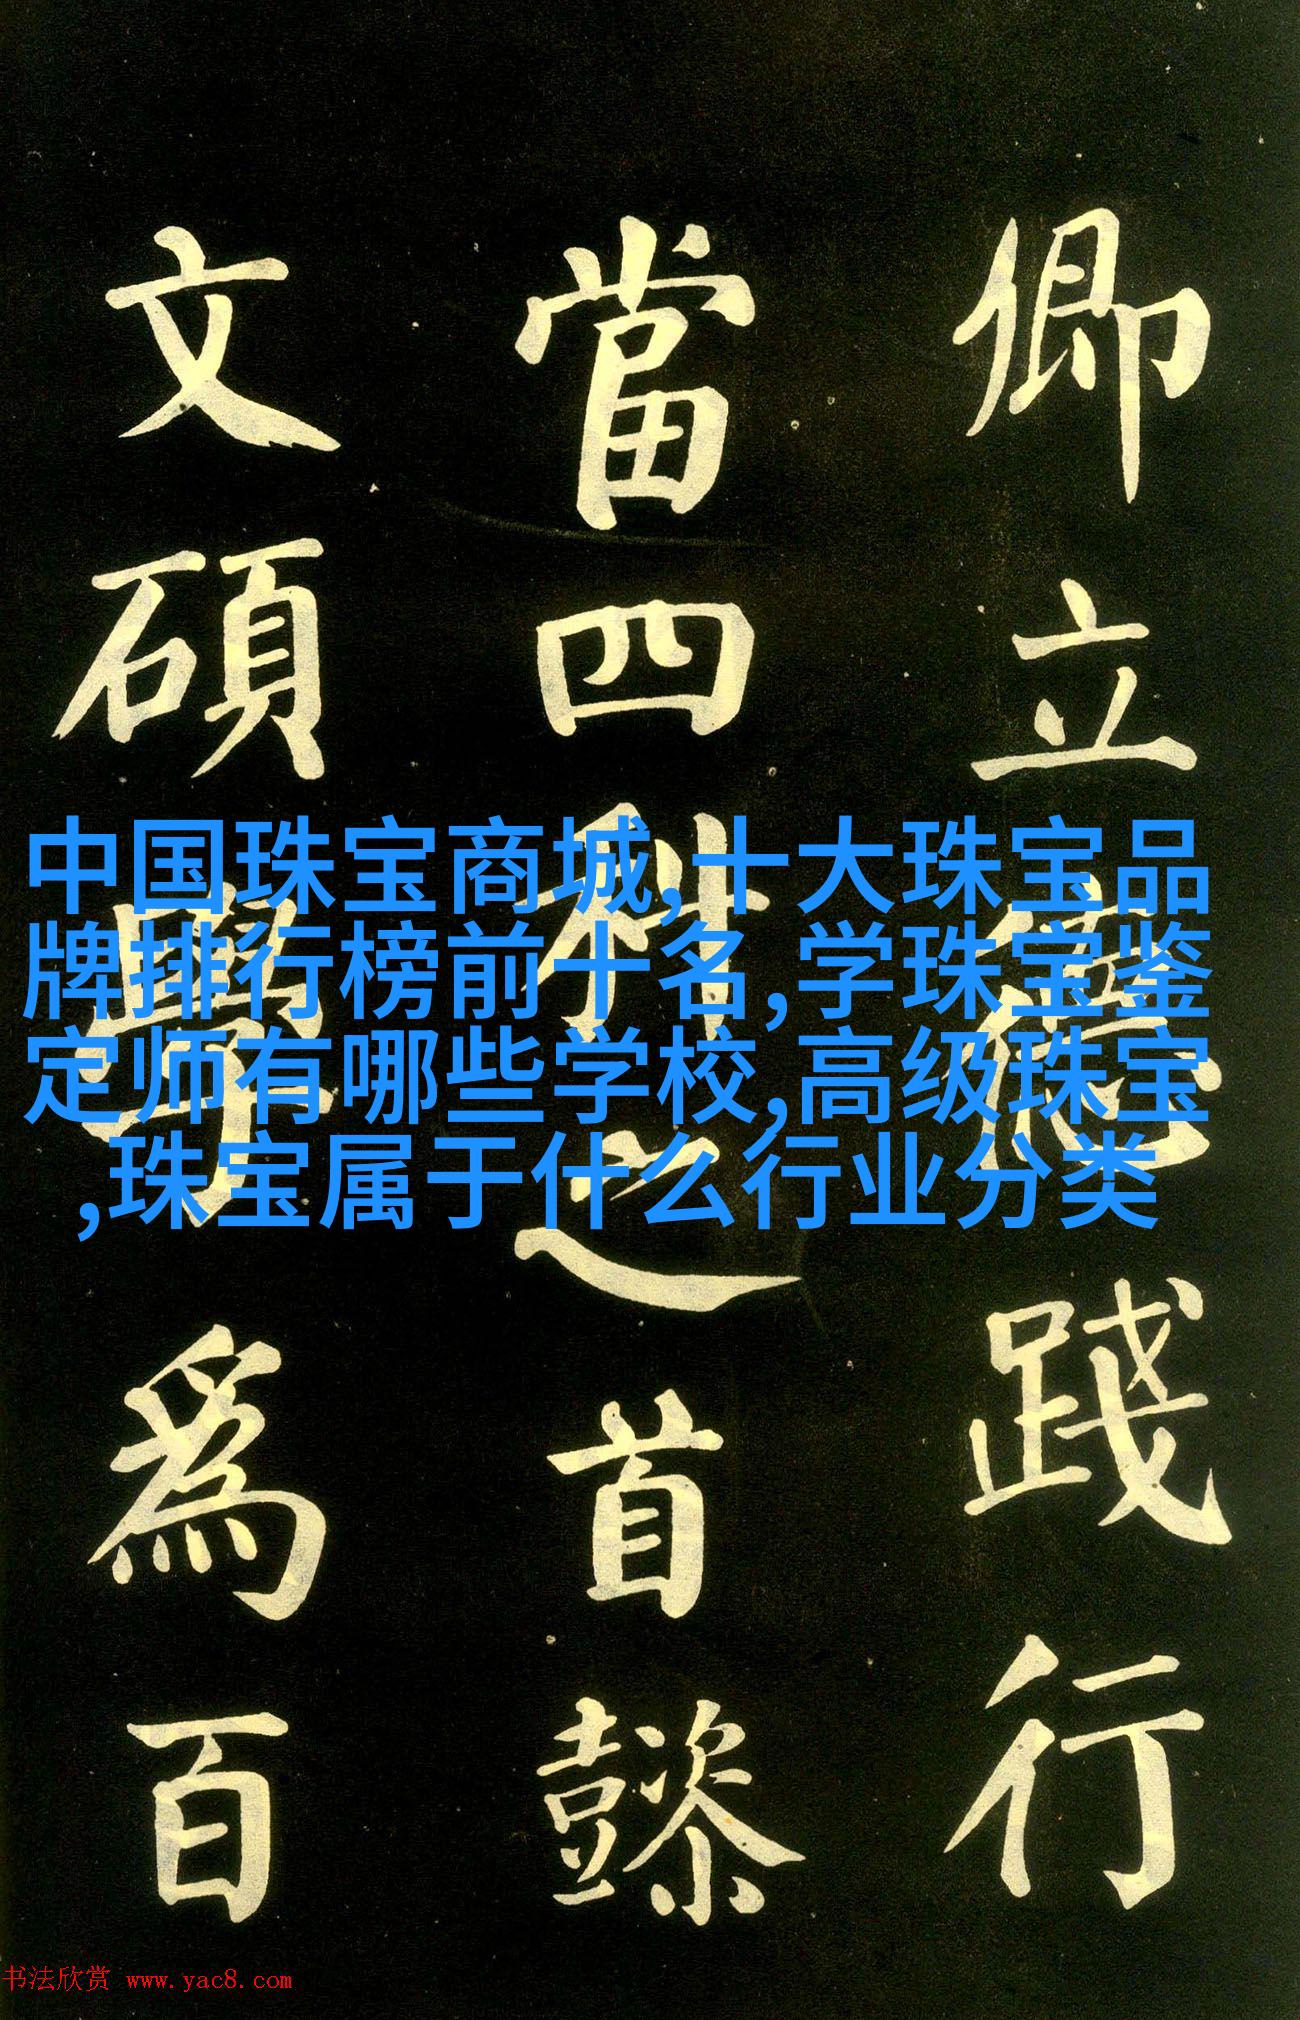 卿立德踐行
當四科之首懿
文碩學為百
中国珠宝商城,十大珠宝品
牌排行榜前十名,学珠宝鉴
定师有哪些学校,高级珠宝
,珠宝属于什么行业分类
书法欣赏 www.yac8.com